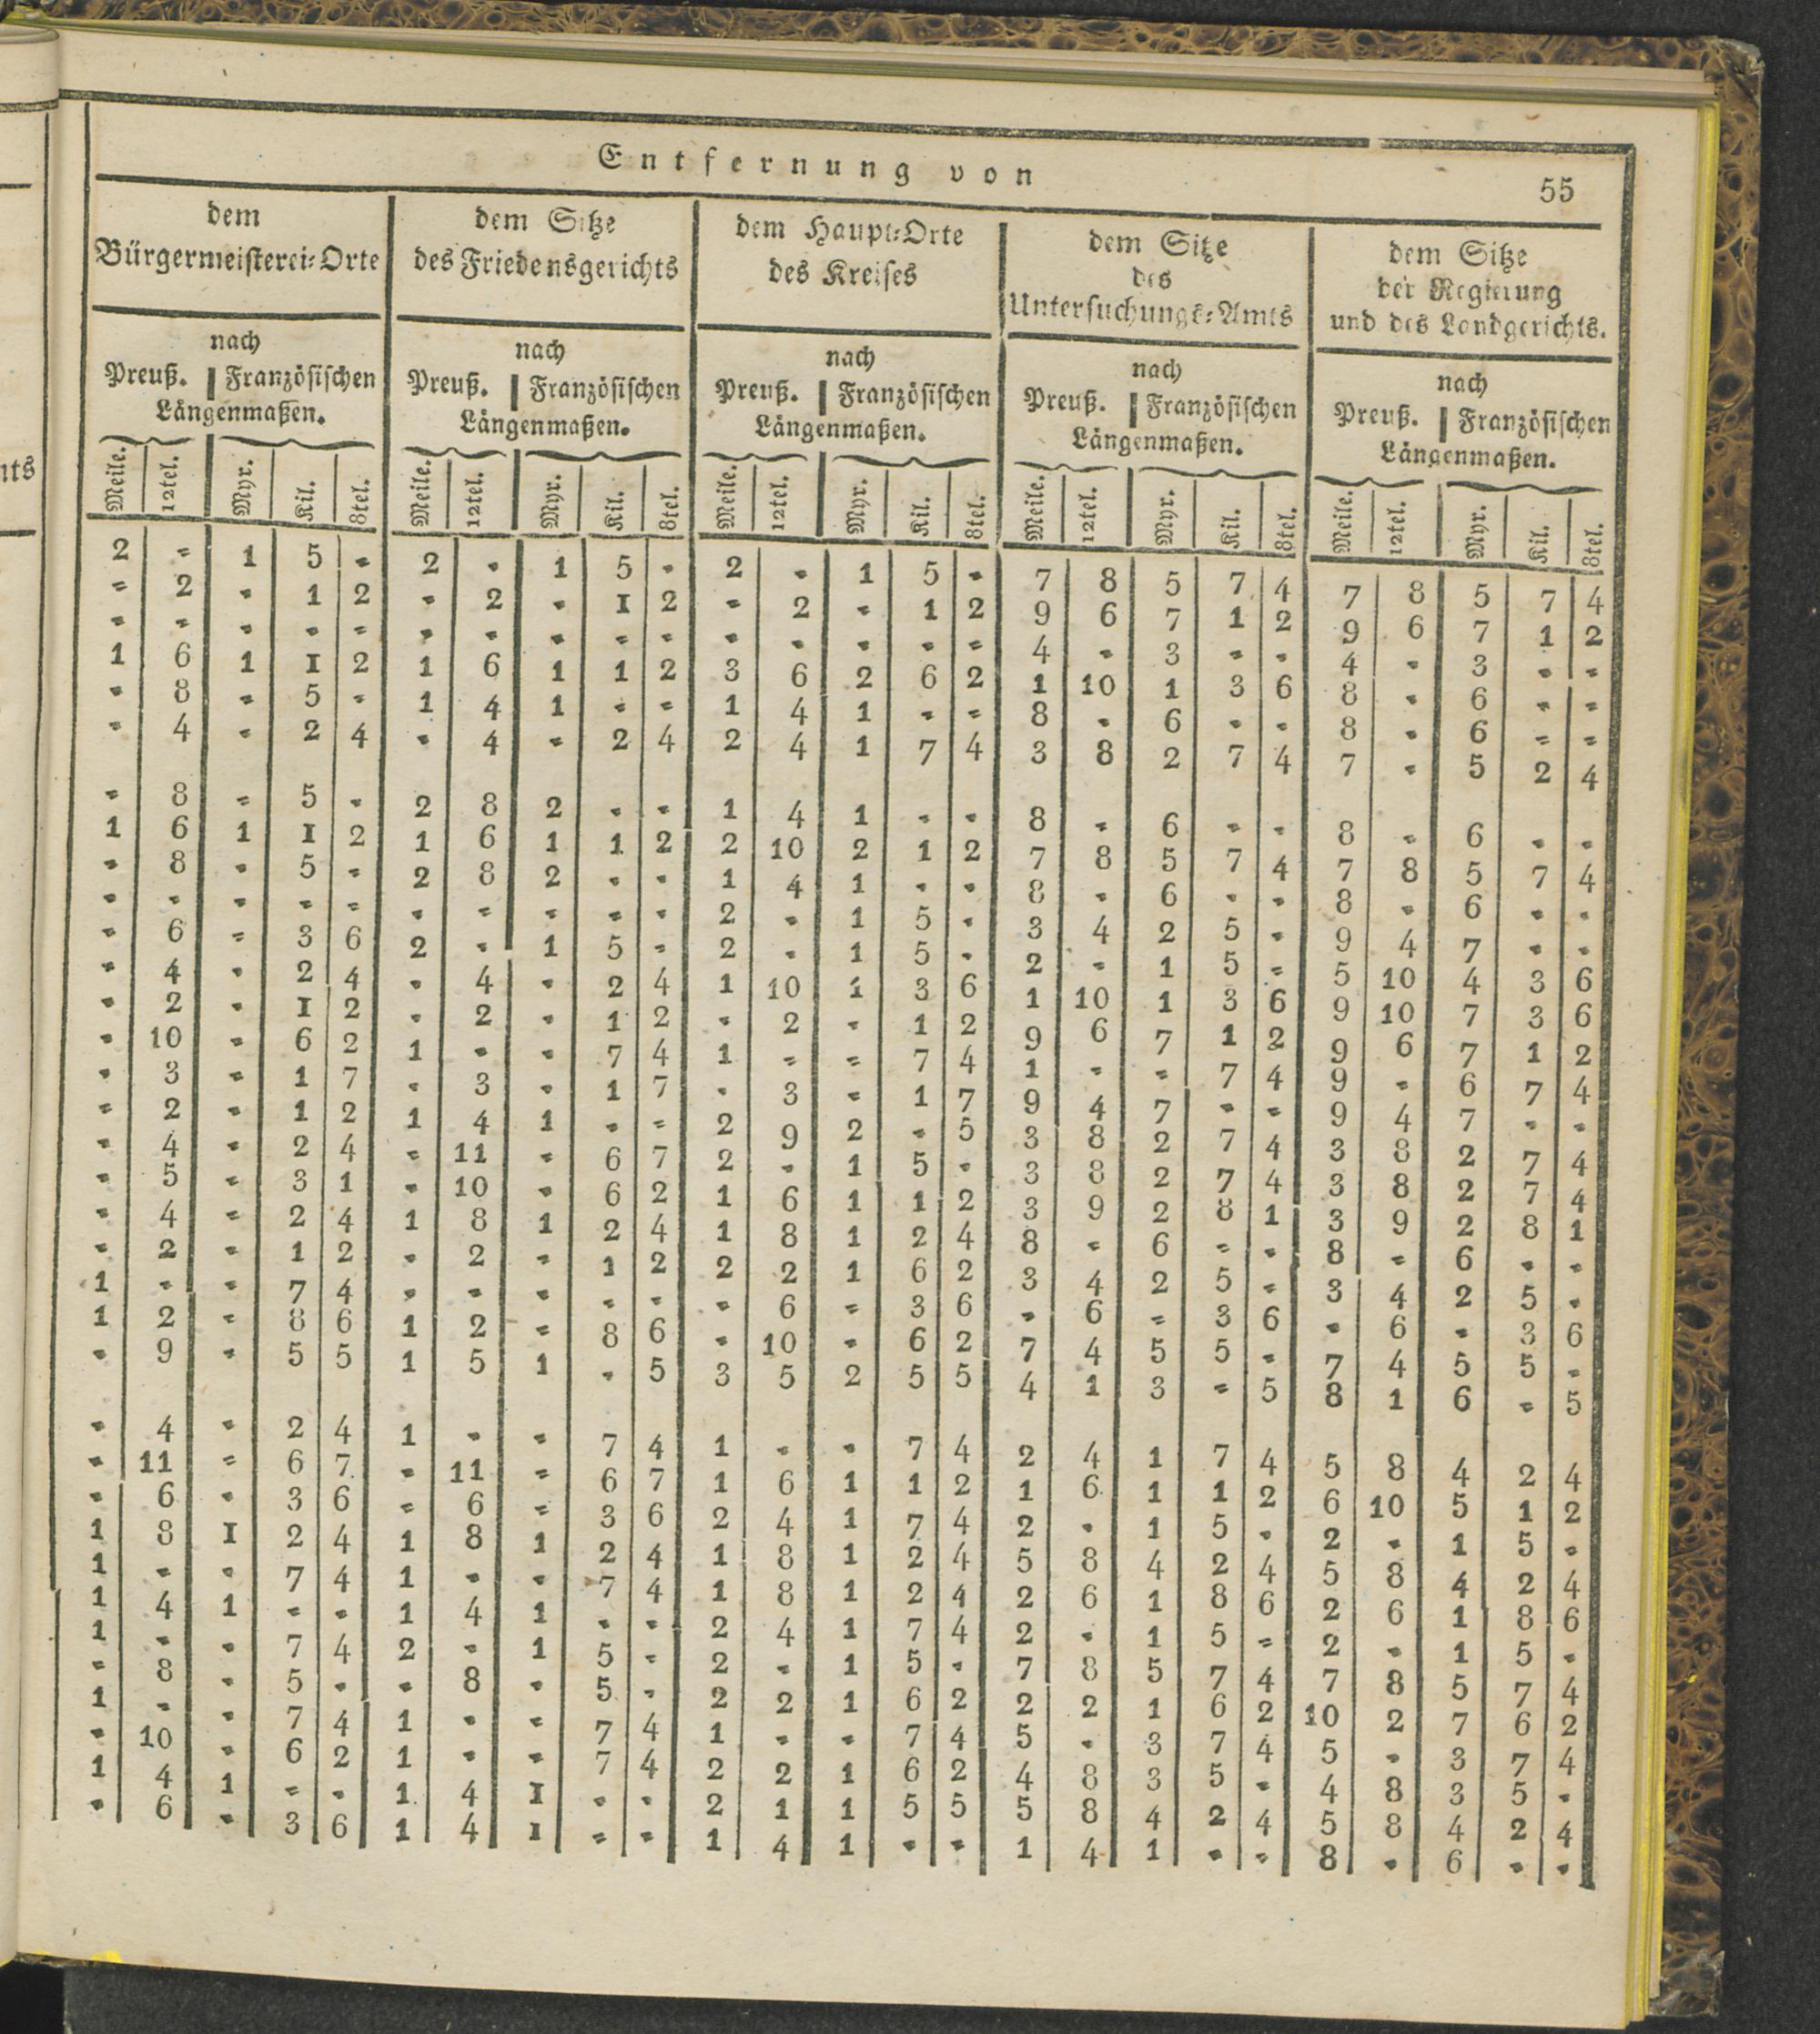 Entfernung von
55
dem
Bürgermeisterei=Orte
dem Sitze
des Friedensgerichts
dem Haupt=Orte
des Kreises
dem Sitze
des
Untersuchungs=Amts
dem Sitze
der Regierung
und des Landgerichts.
nach
Preuß. Französischen
Längenmaßen.
nach
Preuß. Französischen
Längenmaßen.
nach
Preuß. Französischen
Längenmaßen.
nach
Preuß. Französischen
Längenmaßen.
nach
Preuß. Französischen
Längenmaßen.
Meile. 12tel. Myr. Kil. 8tel. Meile. 12tel. Myr. Kil. 8tel. Meile. 12tel. Myr. Kil. 8tel. Meile. 12tel. Myr. Kil. 8tel. Meile. 12tel. Myr. Kil. 8tel.
2 = 1 5 = 2 = 1 5 = 2 = 1 5 = 7 8 5 7 4 7 8 5 7 4
= 2 = 1 2 = 2 = 1 2 = 2 = 1 2 9 6 7 1 2 9 6 7 1 2
= = = = = = = = = = = = = = = 4 = 3 = = 4 = 3 = =
1 6 1 1 2 1 6 1 1 2 3 6 2 6 2 1 10 1 3 6 8 = 6 = =
= 8 = 5 = 1 4 1 = = 1 4 1 = = 8 = 6 = = 8 = 6 = =
= 4 = 2 4 = 4 = 2 4 2 4 1 7 4 3 8 2 7 4 7 = 5 2 4
= 8 = 5 = 2 8 2 = = 1 4 1 = = 8 = 6 = = 8 = 6 = =
1 6 1 1 2 1 6 1 1 2 2 10 2 1 2 7 8 5 7 4 7 8 5 7 4
= 8 = 5 = 2 8 2 = = 1 4 1 = = 8 = 6 = = 8 = 6 = =
= = = = = = = = = = 2 = 1 5 = 3 4 2 5 = 9 4 7 = =
= 6 = 3 6 2 = 1 5 = 2 = 1 5 = 2 = 1 5 = 5 10 4 3 6
= 4 = 2 4 = 4 = 2 4 1 10 1 3 6 1 10 1 3 6 9 10 7 3 6
= 2 = 1 2 = 2 = 1 2 = 2 = 1 2 9 6 7 1 2 9 6 7 1 2
= 10 = 6 2 1 = = 7 4 1 = = 7 4 1 = = 7 4 9 = 6 7 4
= 3 = 1 7 = 3 = 1 7 = 3 = 1 7 9 4 7 = = 9 4 7 = =
= 2 = 1 2 1 4 1 = = 2 9 2 = 5 3 8 2 7 4 3 8 2 7 4
= 4 = 2 4 = 11 = 6 7 2 = 1 5 = 3 8 2 7 4 3 8 2 7 4
= 5 = 3 1 = 10 = 6 2 1 6 1 1 2 3 9 2 8 1 3 9 2 8 1
= 4 = 2 4 1 8 1 2 4 1 8 1 2 4 8 = 6 = = 8 = 6 = =
= 2 = 1 2 = 2 = 1 2 2 2 1 6 2 3 4 2 5 = 3 4 2 5 =
1 = = 7 4 = = = = = = 6 = 3 6 = 6 = 3 6 = 6 = 3 6
1 2 = 8 6 1 2 = 8 6 = 10 = 6 2 7 4 5 5 = 7 4 5 5 =
= 9 = 5 5 1 5 1 = 5 3 5 2 5 5 4 1 3 = 5 8 1 6 = 5
= 4 = 2 4 1 = = 7 4 1 = = 7 4 2 4 1 7 4 5 8 4 2 4
= 11 = 6 7 = 11 = 6 7 1 6 1 1 2 1 6 1 1 2 6 10 5 1 2
= 6 = 3 6 = 6 = 3 6 2 4 1 7 4 2 = 1 5 = 2 = 1 5 =
1 8 1 2 4 1 8 1 2 4 1 8 1 2 4 5 8 4 2 4 5 8 4 2 4
1 = = 7 4 1 = = 7 4 1 8 1 2 4 2 6 1 8 6 2 6 1 8 6
1 4 1 = = 1 4 1 = = 2 4 1 7 4 2 = 1 5 = 2 = 1 5 =
1 = = 7 4 2 = 1 5 = 2 = 1 5 = 7 8 5 7 4 7 8 5 7 4
= 8 = 5 = = 8 = 5 = 2 2 1 6 2 2 2 1 6 2 10 2 7 6 2
1 = = 7 4 1 = = 7 4 1 = = 7 4 5 = 3 7 4 5 = 3 7 4
= 10 = 6 2 1 = = 7 4 2 2 1 6 2 4 8 3 5 = 4 8 3 5 =
1 4 1 = = 1 4 1 = = 2 1 1 5 5 5 8 4 2 4 5 8 4 2 4
= 6 = 3 6 1 4 1 = = 1 4 1 = = 1 4 1 = = 8 = 6 = =